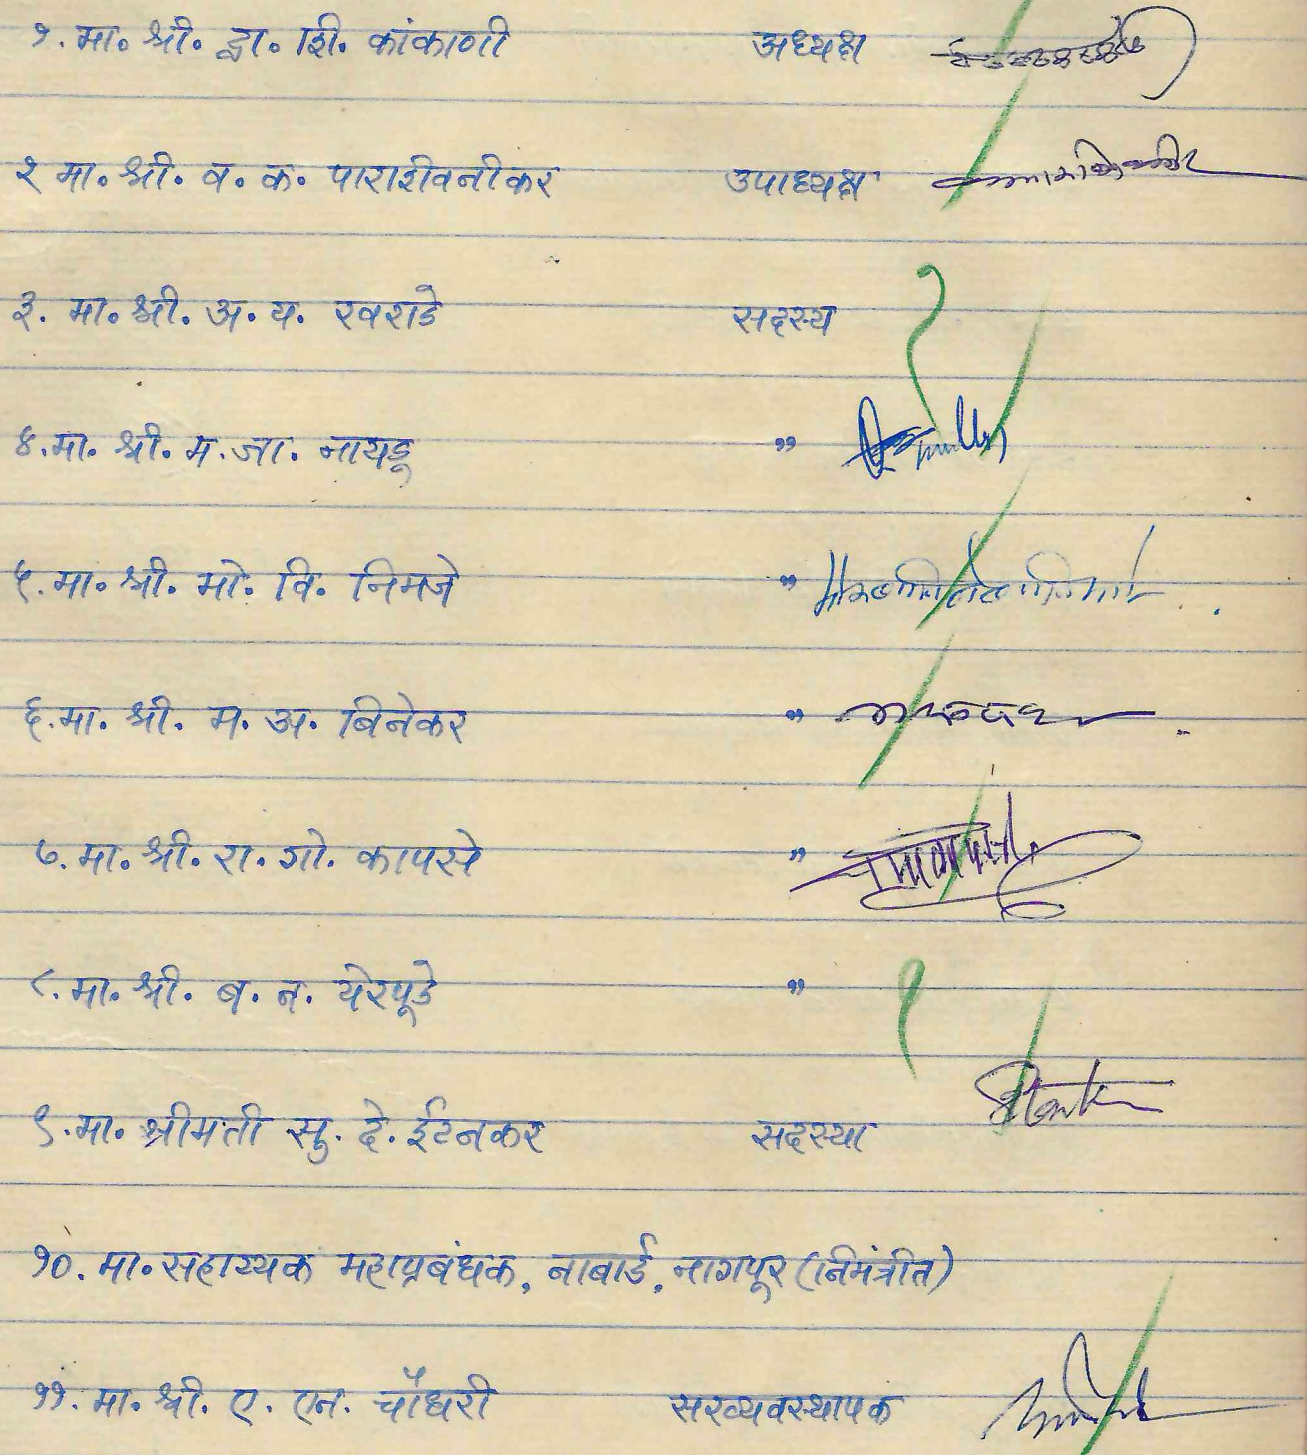 १. मा. श्री. द्वा. शि. कांकाणी अध्यक्ष
२ मा. श्री. व. क. पाराशीवनीकर उपाध्यक्ष
३. मा. श्री. अ. य. खवशडे सदस्य
४. मा. श्री. म. जा. नायडू "
५. मा. श्री. मो. वि. निमजे "
६. मा. श्री. म. अ. बिनेकर "
७. मा. श्री. रा. गो. कापसे "
८. मा. श्री. ब. न. येरपूडे "
९. मा. श्रीमती सु. दे. ईटनकर सदस्या
१०. मा. सहाय्यक महाप्रबंधक, नाबार्ड, नागपूर (निमंत्रीत)
११. मा. श्री. ए. एन. चौधरी सरव्यवस्थापक